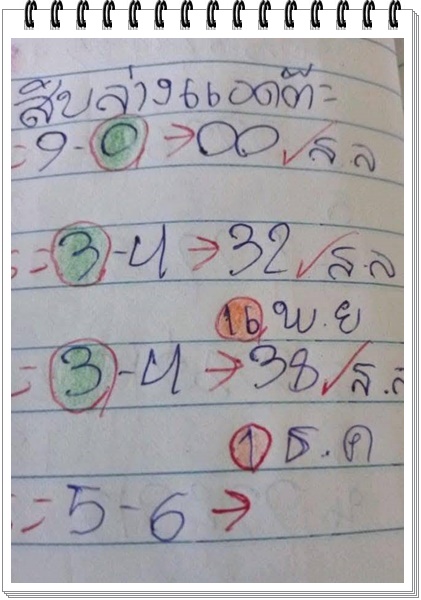 สิบล่างแอดต๊ะ
= 9 - 0 → 00 ✓ ส.ล
= 3 - 4 → 32 ✓ ส.ล
16 พ.ย
= 3 - 4 → 38 ✓ ส.ล
1 ธ.ค
= 5 - 6 →